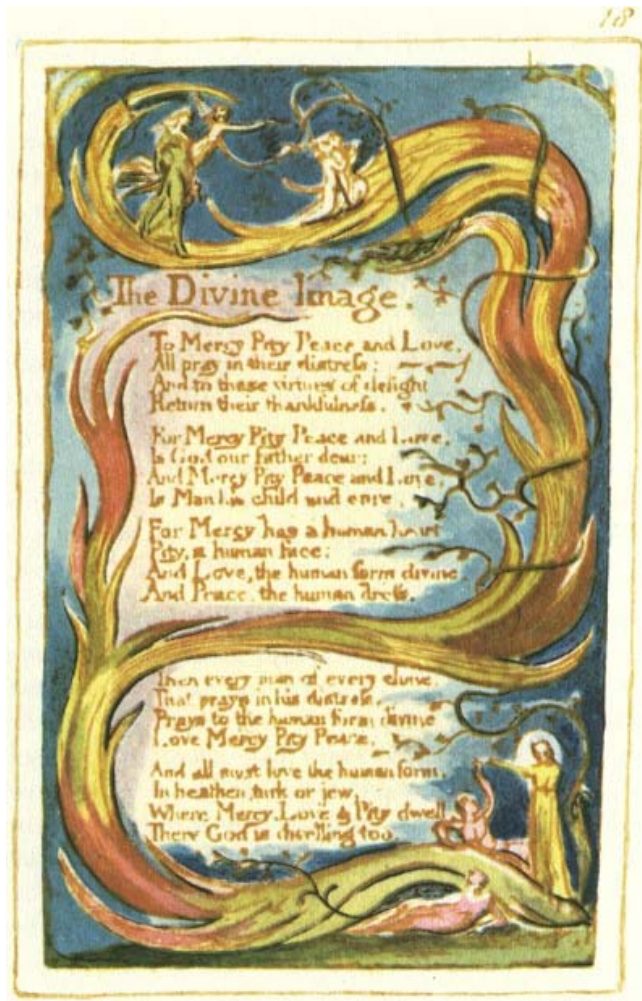 18
The Divine Image.
To Mercy Pity Peace and Love,
All pray in their distress:
And to these virtues of delight
Return their thankfulness.
For Mercy Pity Peace and Love,
Is God our father dear:
And Mercy Pity Peace and Love,
Is Man his child and care.
For Mercy has a human heart
Pity, a human face:
And Love, the human form divine
And Peace, the human dress.
Then every man of every clime,
That prays in his distress,
Prays to the human form divine
Love Mercy Pity Peace.
And all must love the human form,
In heathen, turk or jew.
Where Mercy, Love & Pity dwell
There God is dwelling too.